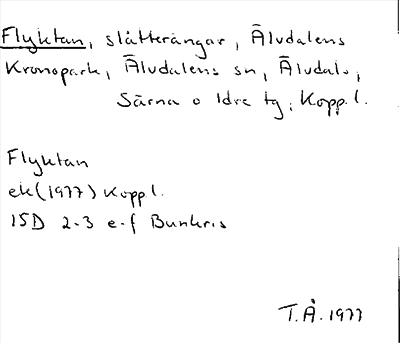 Flyktan, slåtterängar, Älvdalens
Kronopark, Älvdalens sn, Älvdals,
Särna o Idre tg, Kopp.l.
Flyktan
ek (1977) Kopp.l.
15D 2-3 e-f Bunkris
T.Å. 1977